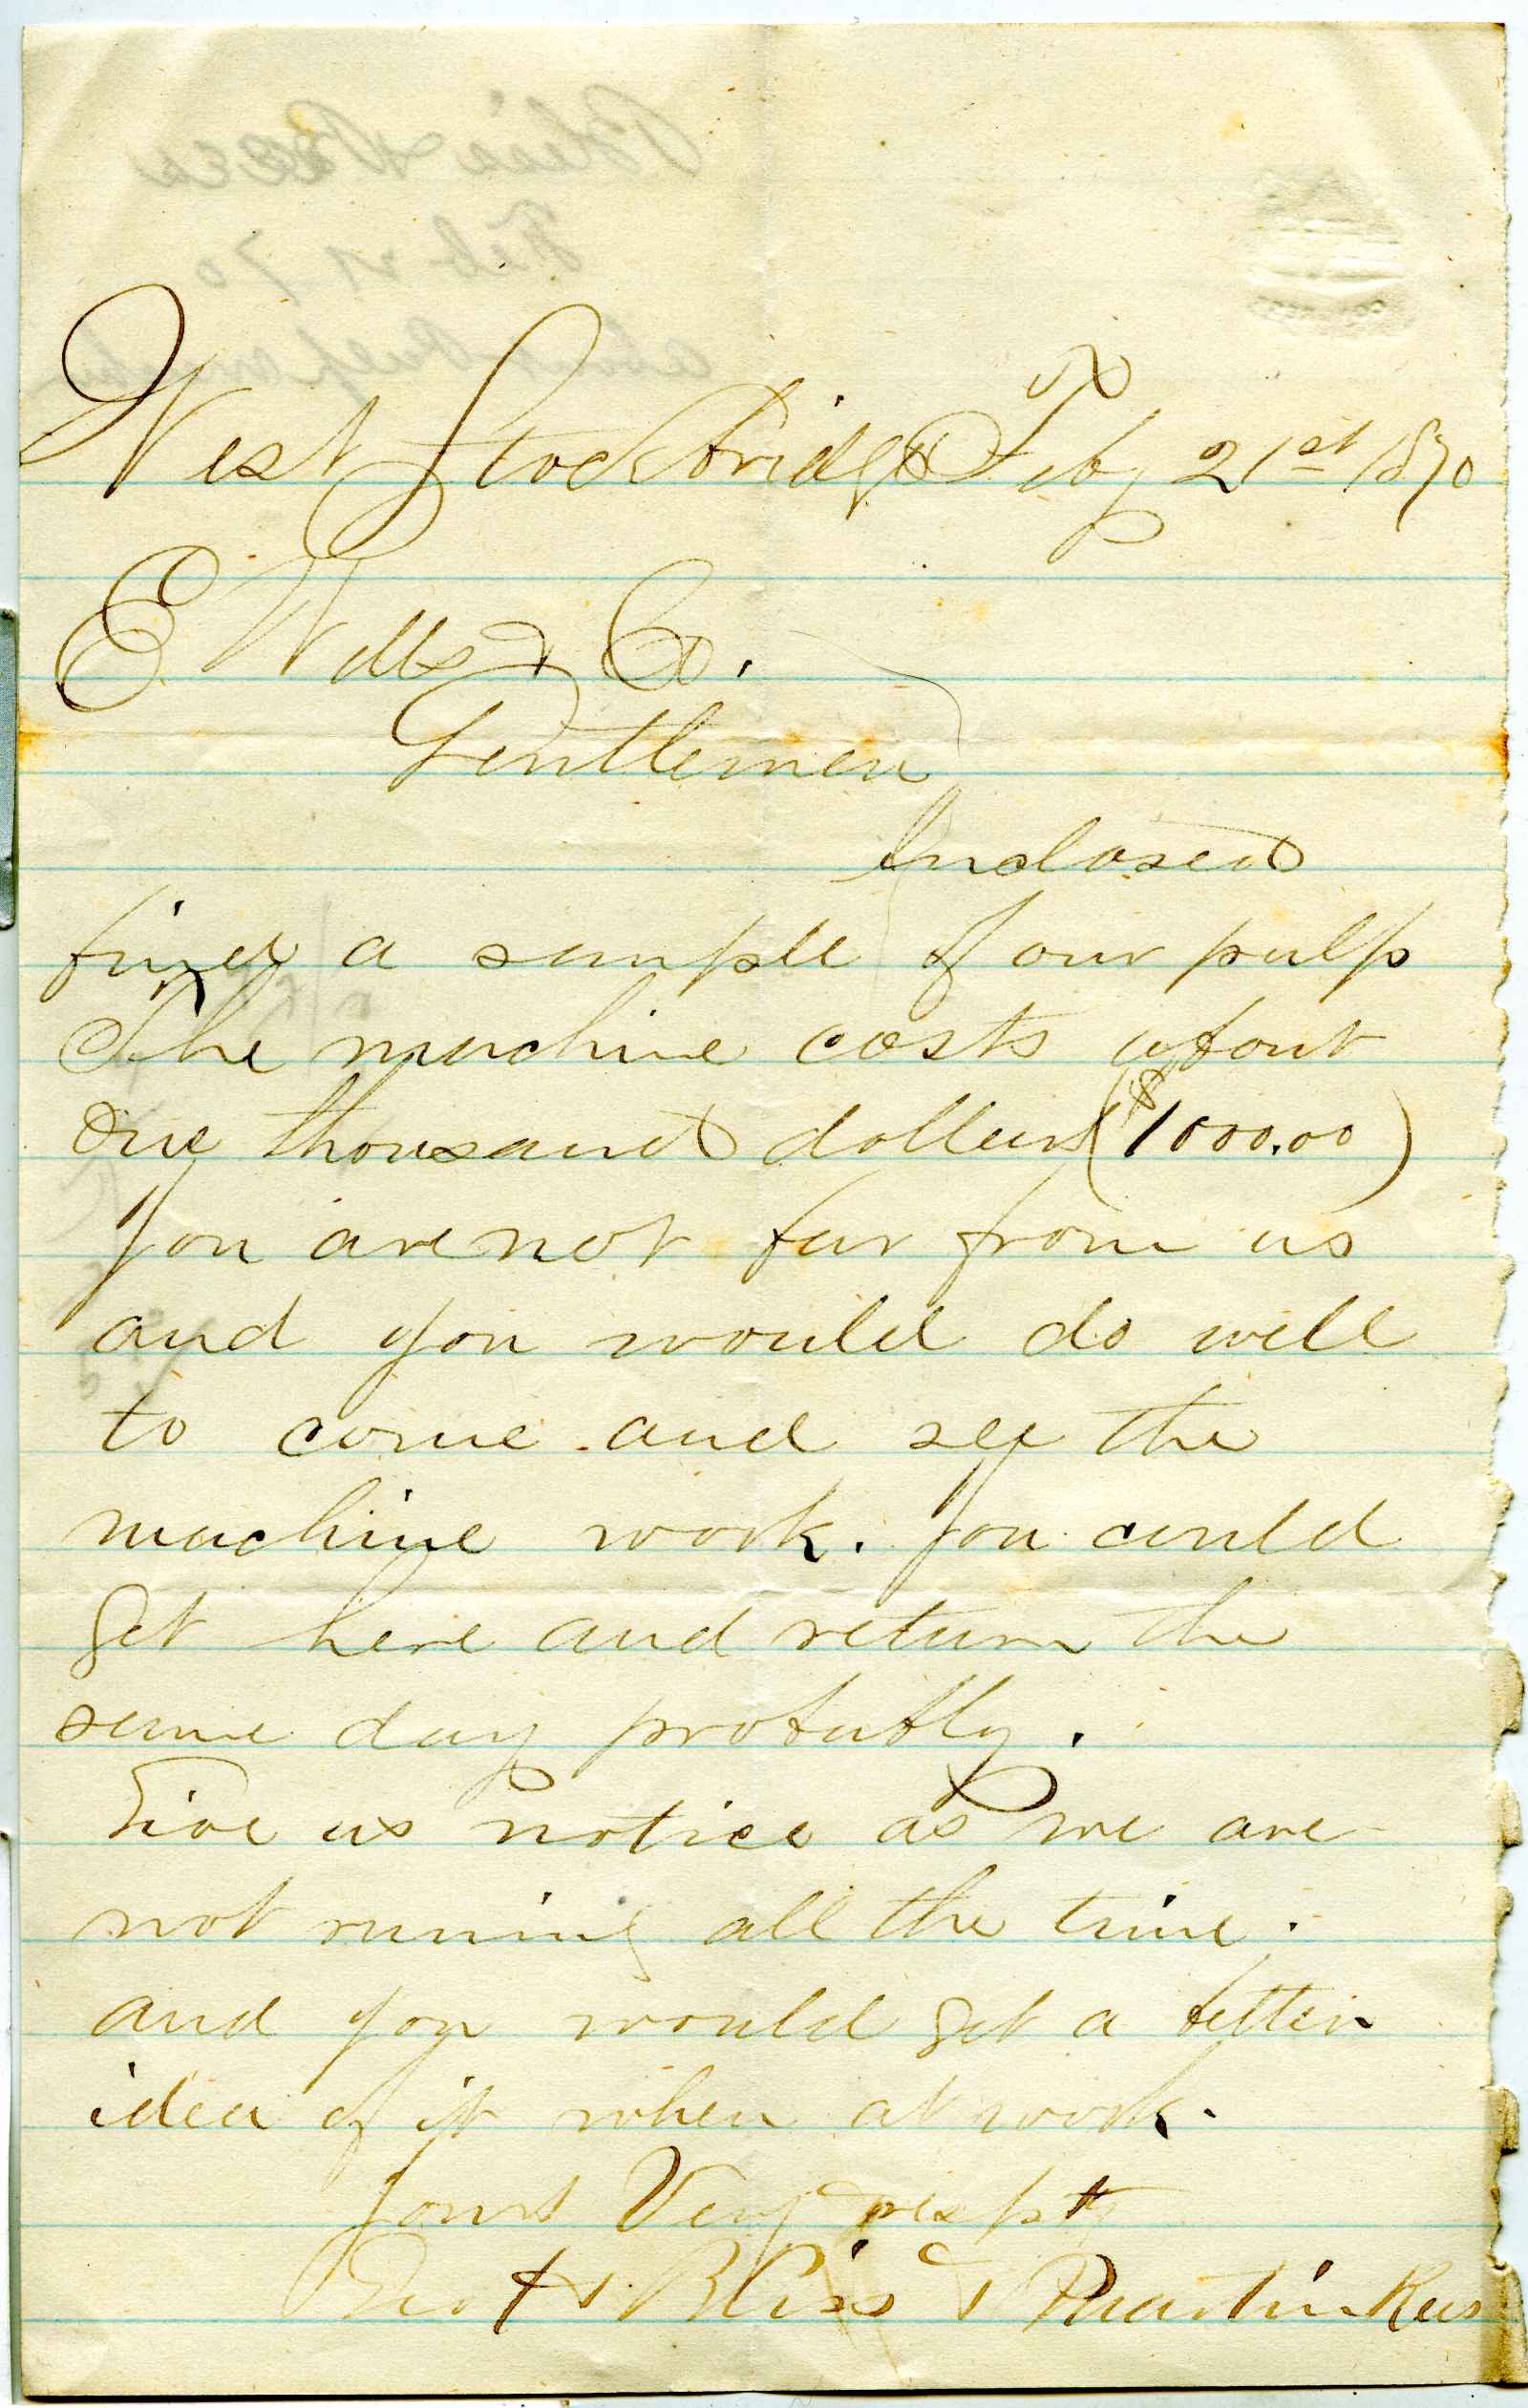 West Stockbridge Feby 21st 1870
E. Wells & Co.
Gentlemen
Inclosed
find a sample of our pulp
The machine costs about
One thousand dollars ($1000.00)
You are not far from us
and you would do well
to come and see the
machine work. You could
get here and return the
same day probably.
Give us notice as we are
not runing all the time.
and you would get a better
idea of it when at work.
Yours Very respty
Bliss & Martin Rees